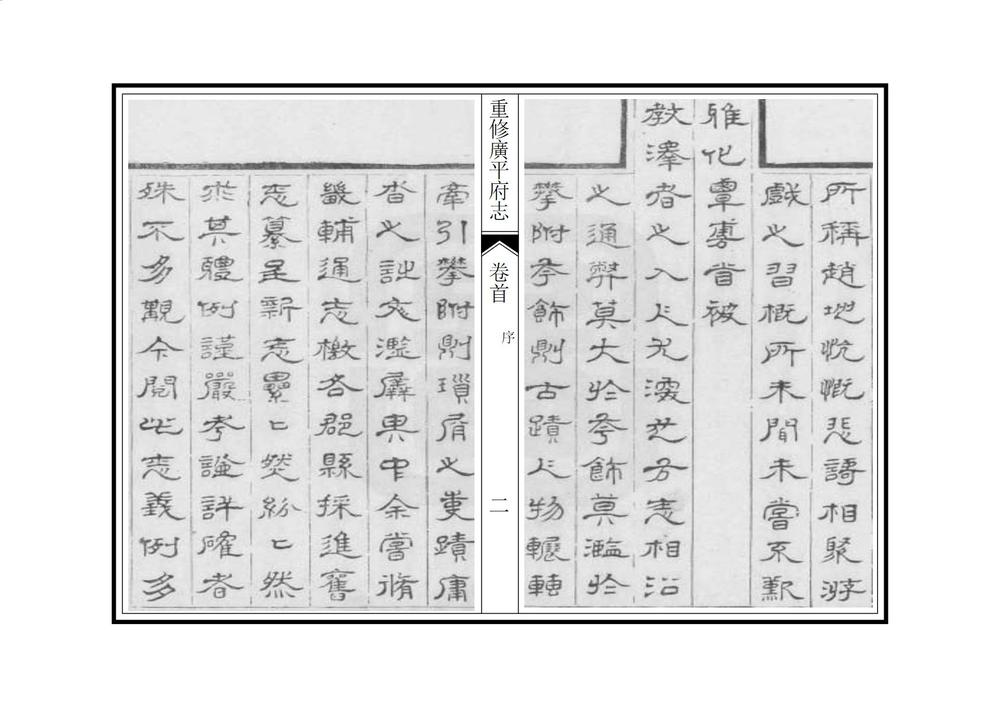 所稱趙地忼慨悲謌相聚游
戲之習概所未聞未嘗不歎
雅化覃旉皆被
教澤者之入人尤深也方志相沿
之通弊莫大於夸飾莫濫於
攀附夸飾則古蹟人物輾轉
重修廣平府志
卷首
序
二
牽引攀附則瑣屑之事蹟庸
沓之詩文濫廁其中余嘗脩
畿輔通志檄各郡縣採進舊
志纂呈新志纍〻然紛〻然
求其體例謹嚴考證詳確者
殊不多覯今閱此志義例多